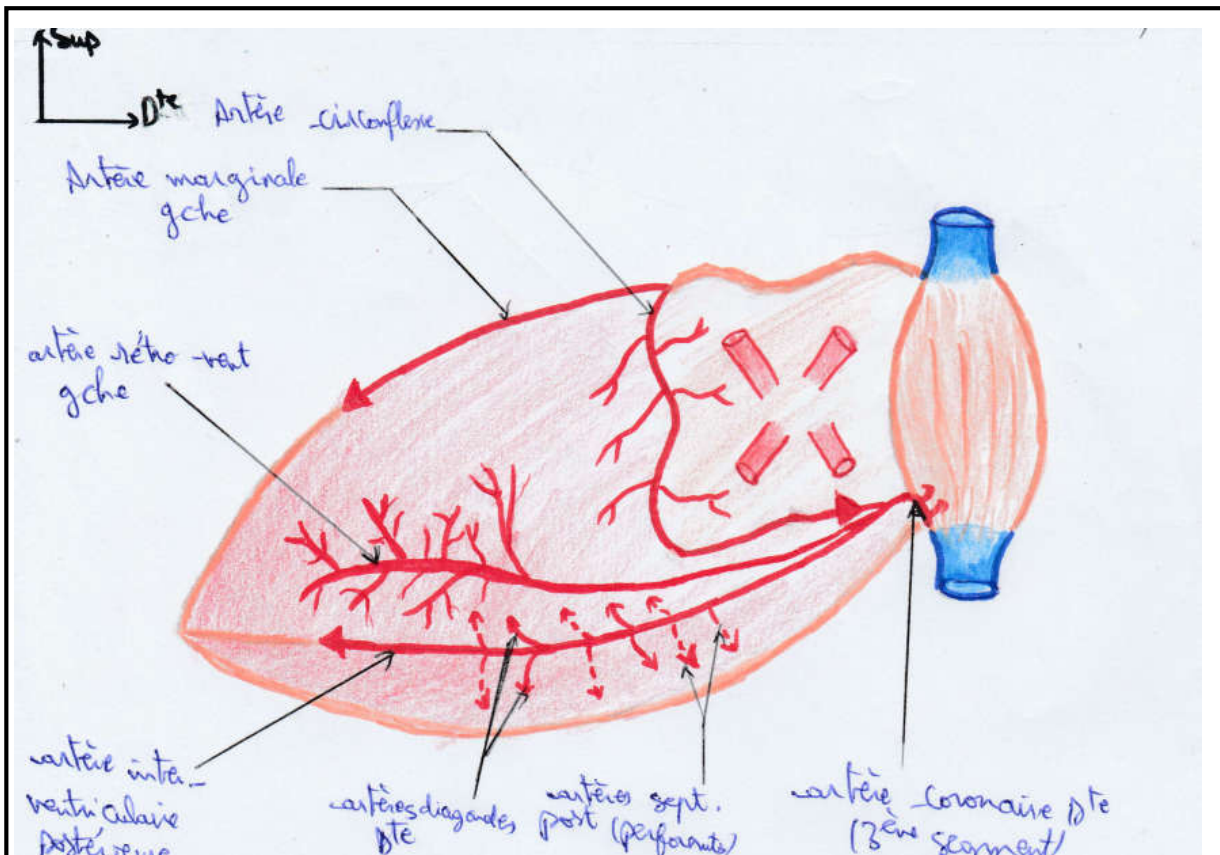 Sup
Dte
Artère circonflexe
Artère marginale
gche
artère rétro-vent
gche
artère inter-
ventriculaire
postérieure
artères diagonales
Dte
artères sept.
post (perforante)
artère coronaire Dte
(3ème segment)